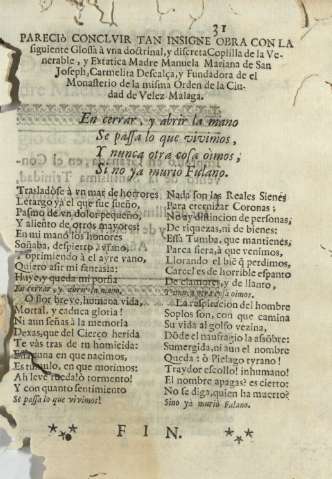 31
PARECIò CONCLVIR TAN INSIGNE OBRA CON LA
siguiente Glossa à vna doctrinal, y discreta Coplilla de la Ve-
nerable, y Extatica Madre Manuela Mariana de San
Joseph, Carmelita Descalça, y Fundadora de el
Monasterio de la misma Orden de la Ciu-
dad de Velez-Malaga.
En cerrar, y abrir la mano
Se passa lo que vivimos,
Y nunca otra cosa oìmos;
Si no ya murio Fulano.
Trasladòse à vn mar de horrores
Letargo ya el que fue sueño,
Pasmo de vn dolor pequeño,
Y aliento de otros mayores:
En mi mano los honores
Soñaba, despierto
oprimiendo à el ayre vano,
Quiero asir mi fantasia:
Huye, y queda mi porfia
En cerrar, y abrir la mano.
O flor breve, humana vida,
Mortal, y caduca gloria!
Ni aun señas à la memoria
Dexas, que del Cierço herida
Te vàs tras de tu homicida:
Es cuna en que nacimos,
Es tumulo, en que morimos:
Ah leve rueda! ò tormento!
Y con quanto sentimiento
Se passa lo que vivimos!
Nada son las Reales Sienes
Para eternizar Coronas;
No ay distincion de personas,
De riquezas, ni de bienes:
Essa Tumba, que mantienes,
Parca fiera, à que venimos,
Llorando el biē q̄ perdimos,
Carcel es de horrible espanto
De clamores, y de llanto,
Y nunca otra cosa oìmos.
La respiracion del hombre
Soplos son, con que camina
Su vida al golfo vezina,
Dōde el naufragio la assōbre:
Sumergida, ni aun el nombre
Queda: ò Pielago tyrano!
Traydor escollo! inhumano!
El nombre apagas? es cierto:
No se diga, quien ha muerto?
Sino ya muriò Fulano.
FIN.